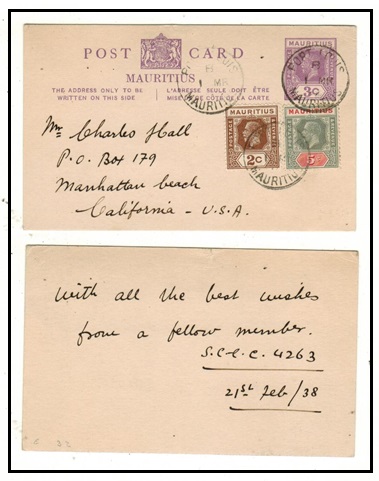 POST CARD
MAURITIUS
THE ADDRESS ONLY TO BE WRITTEN ON THIS SIDE
L'ADRESSE SEULE DOIT ÊTRE MISE DE CÔTÉ DE LA CARTE
MAURITIUS
3c
PORT LOUIS
B
1 MR
MAURITIUS
B
1 MR
MAURITIUS
Mr Charles Hall
P.O. Box 179
Manhattan beach
California - U.S.A.
MAURITIUS
2c
MAURITIUS
5
MAURITIUS
With all the best wishes
from a fellow member.
S.C.L.C. 4263
21st Feb/38